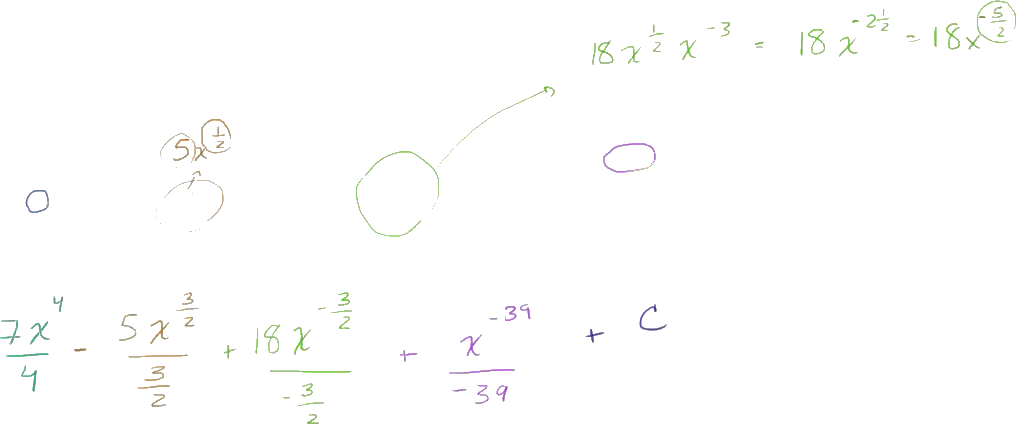 18x^{1/2} x^{-3} = 18x^{-2 1/2} = 18x^{-5/2}
5x^{1/2}
7x^4/4 - 5x^{3/2}/(3/2) + 18x^{-3/2}/(-3/2) + x^{-39}/-39 + C